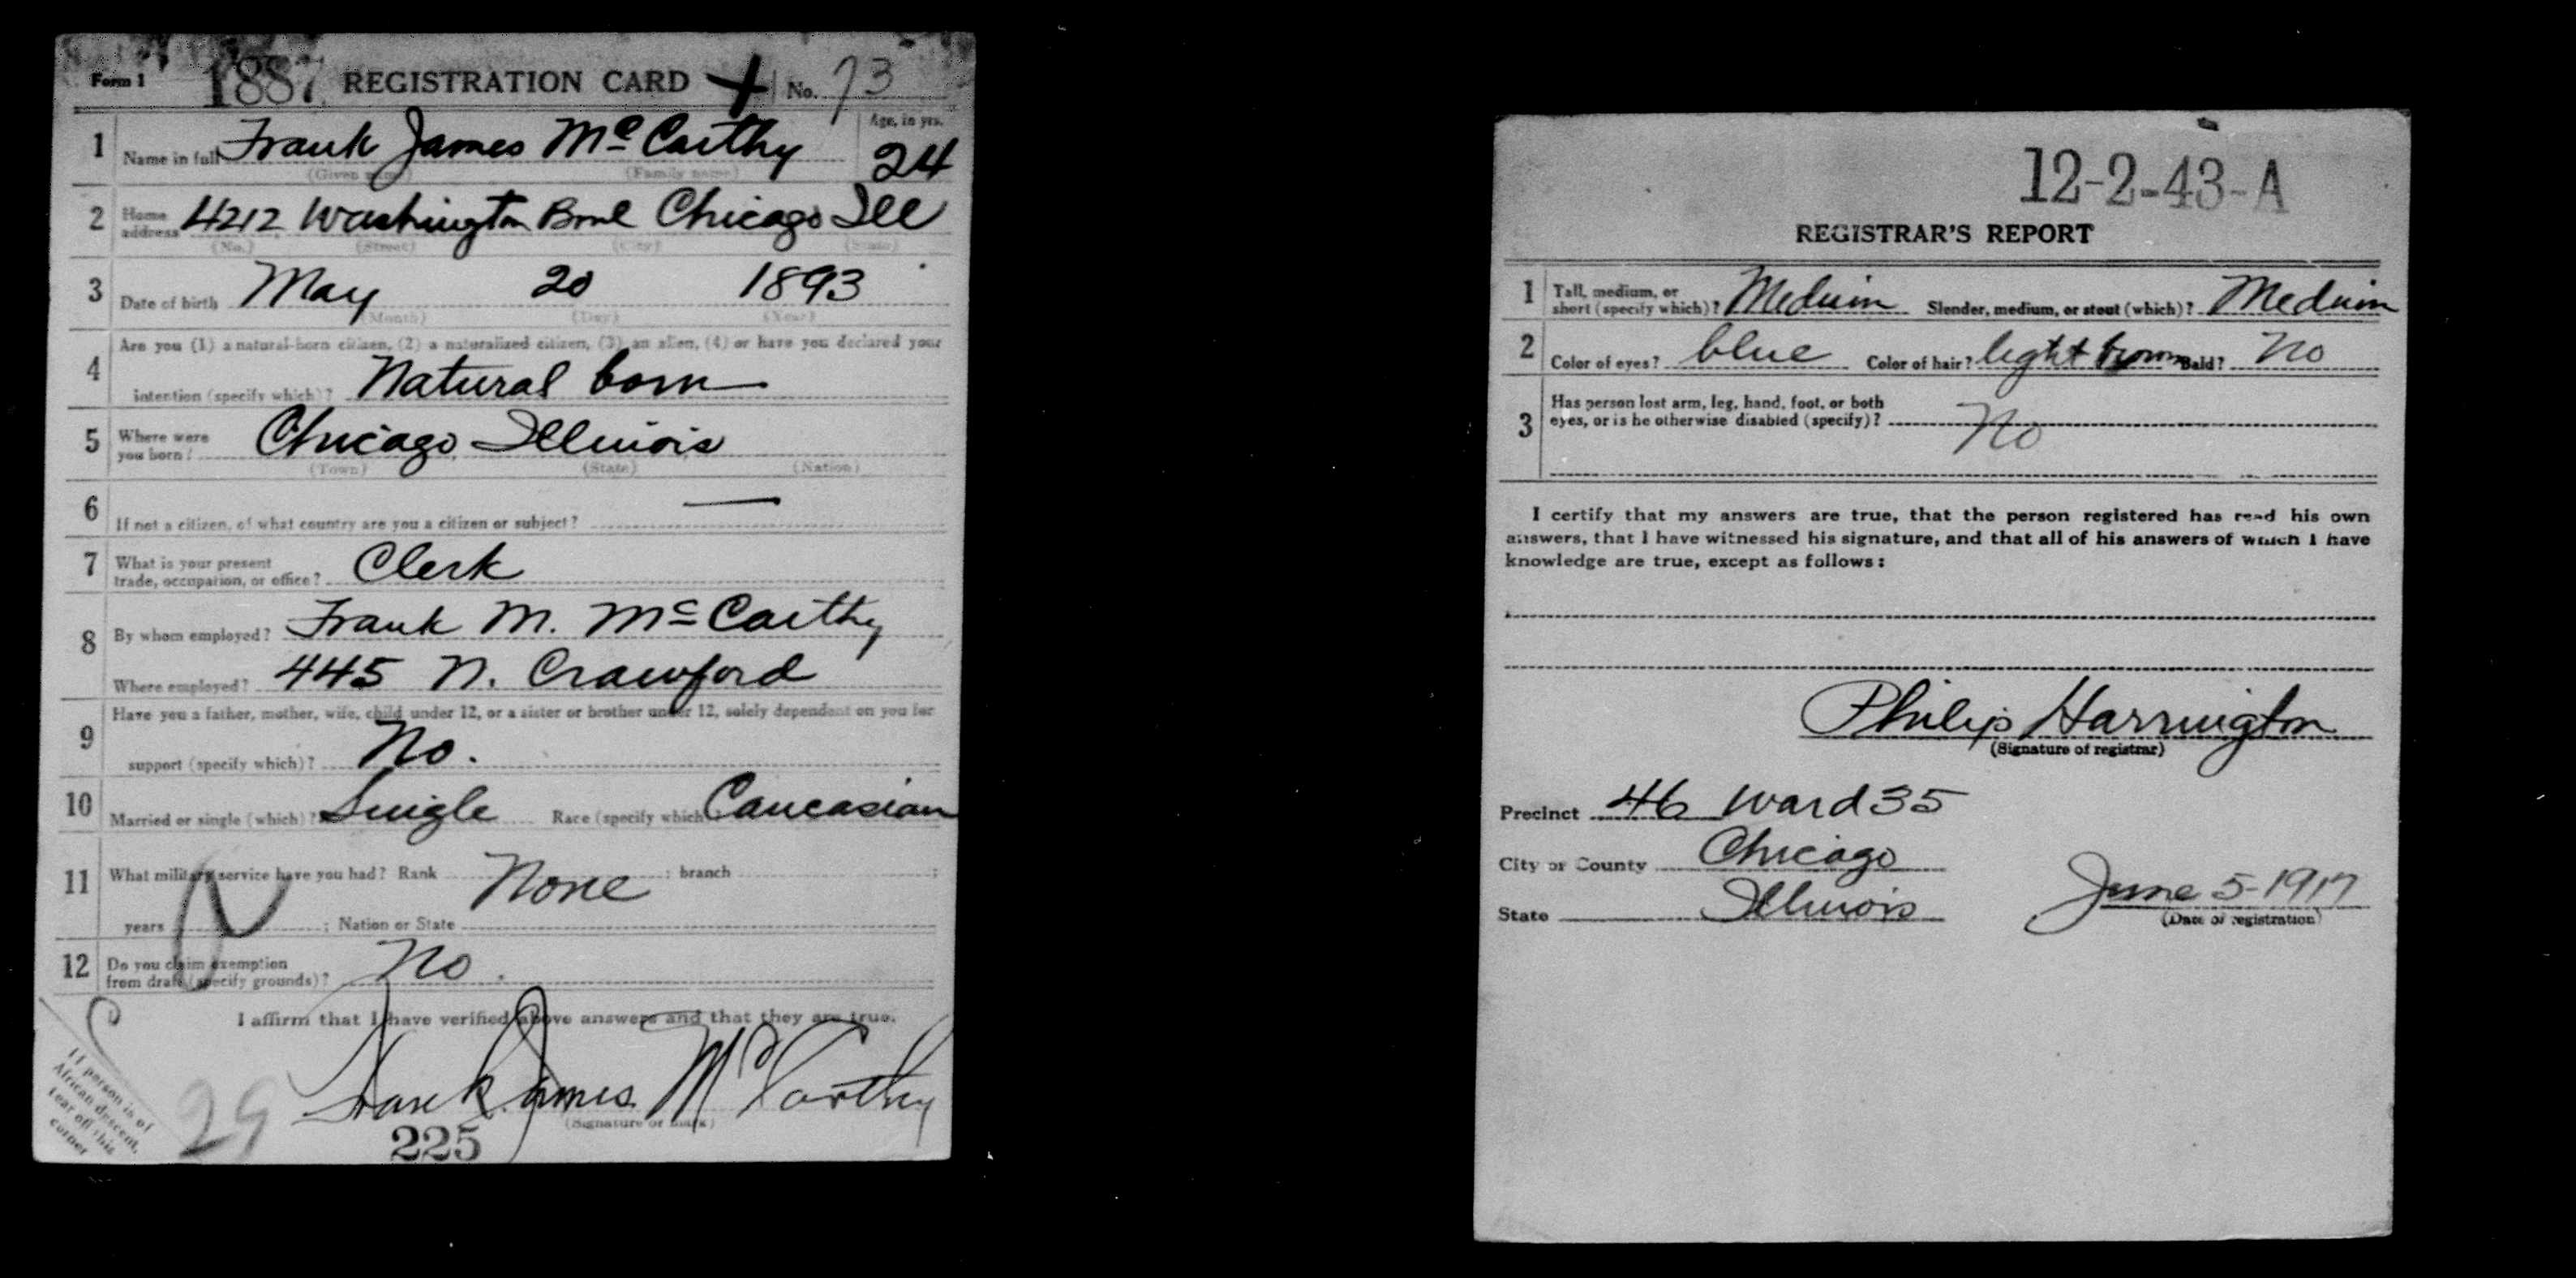 Form 1 1887 REGISTRATION CARD + No. 73
1 Name in full Frank James McCarthy Age, in yrs. 24
(Given name) (Family name)
2 Home address 4212 Washington Boul Chicago Ill
(No.) (Street) (City) (State)
3 Date of birth May 20 1893
(Month) (Day) (Year)
4 Are you (1) a natural-born citizen, (2) a naturalized citizen, (3) an alien, (4) or have you declared your
intention (specify which)? Natural born
5 Where were you born? Chicago Illinois
(Town) (State) (Nation)
6 If not a citizen, of what country are you a citizen or subject? —
7 What is your present
trade, occupation, or office? Clerk
8 By whom employed? Frank M. McCarthy
Where employed? 445 N. Crawford
9 Have you a father, mother, wife, child under 12, or a sister or brother under 12, solely dependent on you for
support (specify which)? No.
10 Married or single (which)? Single Race (specify which)? Caucasian
11 What military service have you had? Rank None ; branch ;
years ; Nation or State
12 Do you claim exemption
from draft (specify grounds)? No.
I affirm that I have verified above answers and that they are true.
Frank James McCarthy
(Signature or mark)
If person is of
African descent,
tear off this
corner
29
225
12-2-43-A
REGISTRAR'S REPORT
1 Tall, medium, or
short (specify which)? Medium Slender, medium, or stout (which)? Medium
2 Color of eyes? blue Color of hair? light brown Bald? No
3 Has person lost arm, leg, hand, foot, or both
eyes, or is he otherwise disabled (specify)? No
I certify that my answers are true, that the person registered has read his own
answers, that I have witnessed his signature, and that all of his answers of which I have
knowledge are true, except as follows:
Philip Harrington
(Signature of registrar)
Precinct 46 Ward 35
City or County Chicago
State Illinois June 5-1917
(Date of registration)